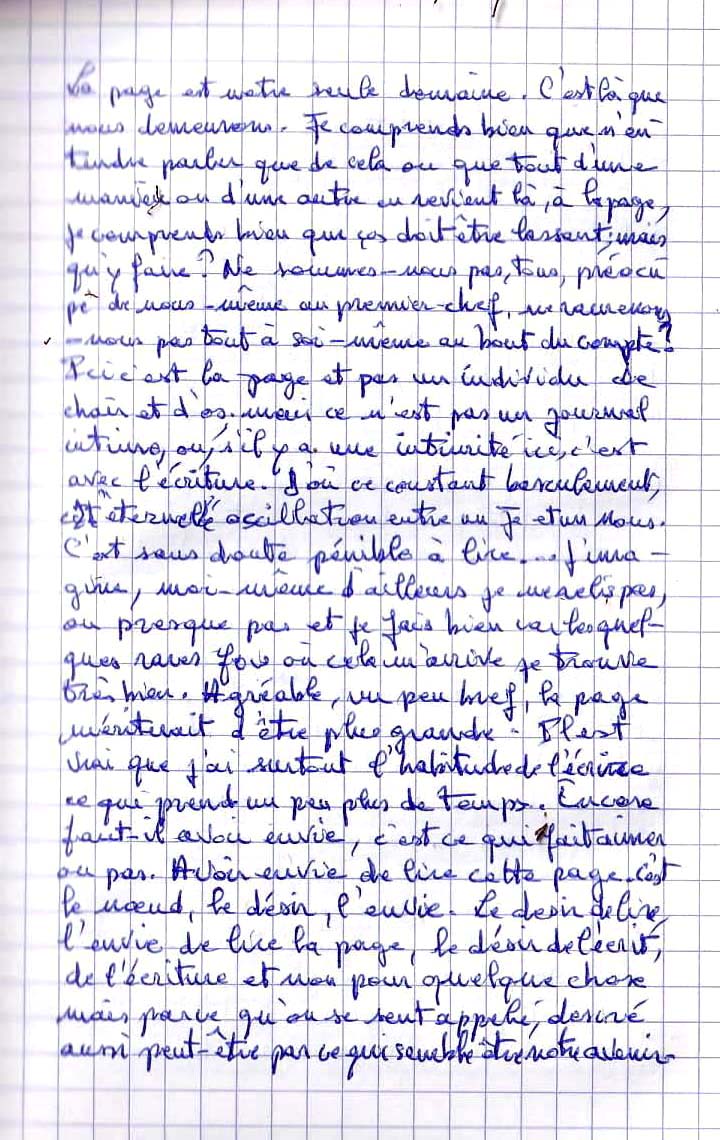 La page est notre seule domaine. C'est là que
nous demeurons. Je comprends bien que n'en-
tendre parler que de cela ou que tout d'une
manière ou d'une autre en revient là, à la page,
je comprends bien que ça doit être lassant, mais
qu'y faire? Ne sommes-nous pas, tous, préocu
pé de nous-même au premier-chef, ne ramenons
-nous pas tout à soi-même au bout du compte?
Ici c'est la page et pas un individu de
chair et d'os. mais ce n'est pas un journal
intime, ou, s'il y a une intimité ici, c'est
avec l'écriture. D'où ce constant basculement,
cet éternelle oscillation entre un Je et un Nous.
C'est sans doute pénible à lire... J'ima-
gine, moi-même d'ailleurs je me relis pas,
ou presque pas et je fais bien car les quel-
ques rares fois où cela m'arrive je trouve
très bien. Agréable, un peu bref, la page
mériterait d'être plus grande. Il est
vrai que j'ai surtout l'habitude de l'écrire
ce qui prend un peu plus de temps. Encore
faut-il avoir envie, c'est ce qui fait aimer
ou pas. Avoir envie de lire cette page. c'est
le nœud, le désir, l'envie. Le desir de lire,
l'envie de lire la page, le désir de l'écrit,
de l'écriture et non pour quelque chose
mais parce qu'on se sent appelé, desiré
aussi peut-être par ce qui semble être notre avenir.